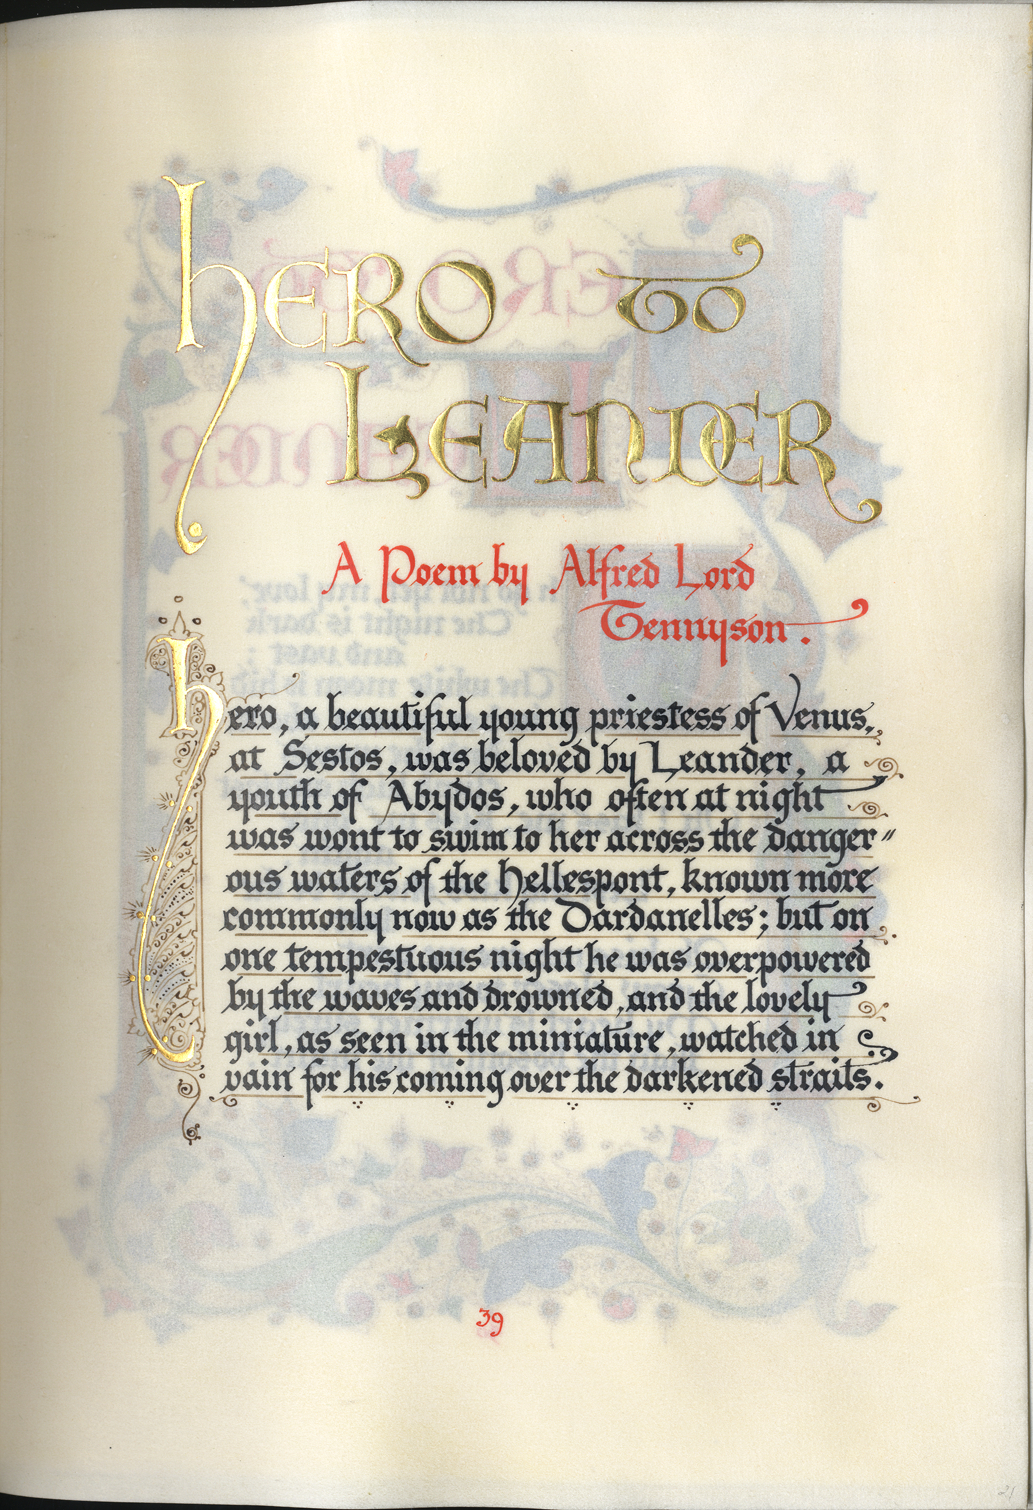 hERO TO
LEANDER
A Poem by Alfred Lord
Tennyson.
hero, a beautiful young priestess of Venus,
at Sestos, was beloved by Leander, a
youth of Abydos, who often at night
was wont to swim to her across the danger=
ous waters of the Hellespont, known more
commonly now as the Dardanelles; but on
one tempestuous night he was overpowered
by the waves and drowned, and the lovely
girl, as seen in the miniature, watched in
vain for his coming over the darkened straits.
39
21